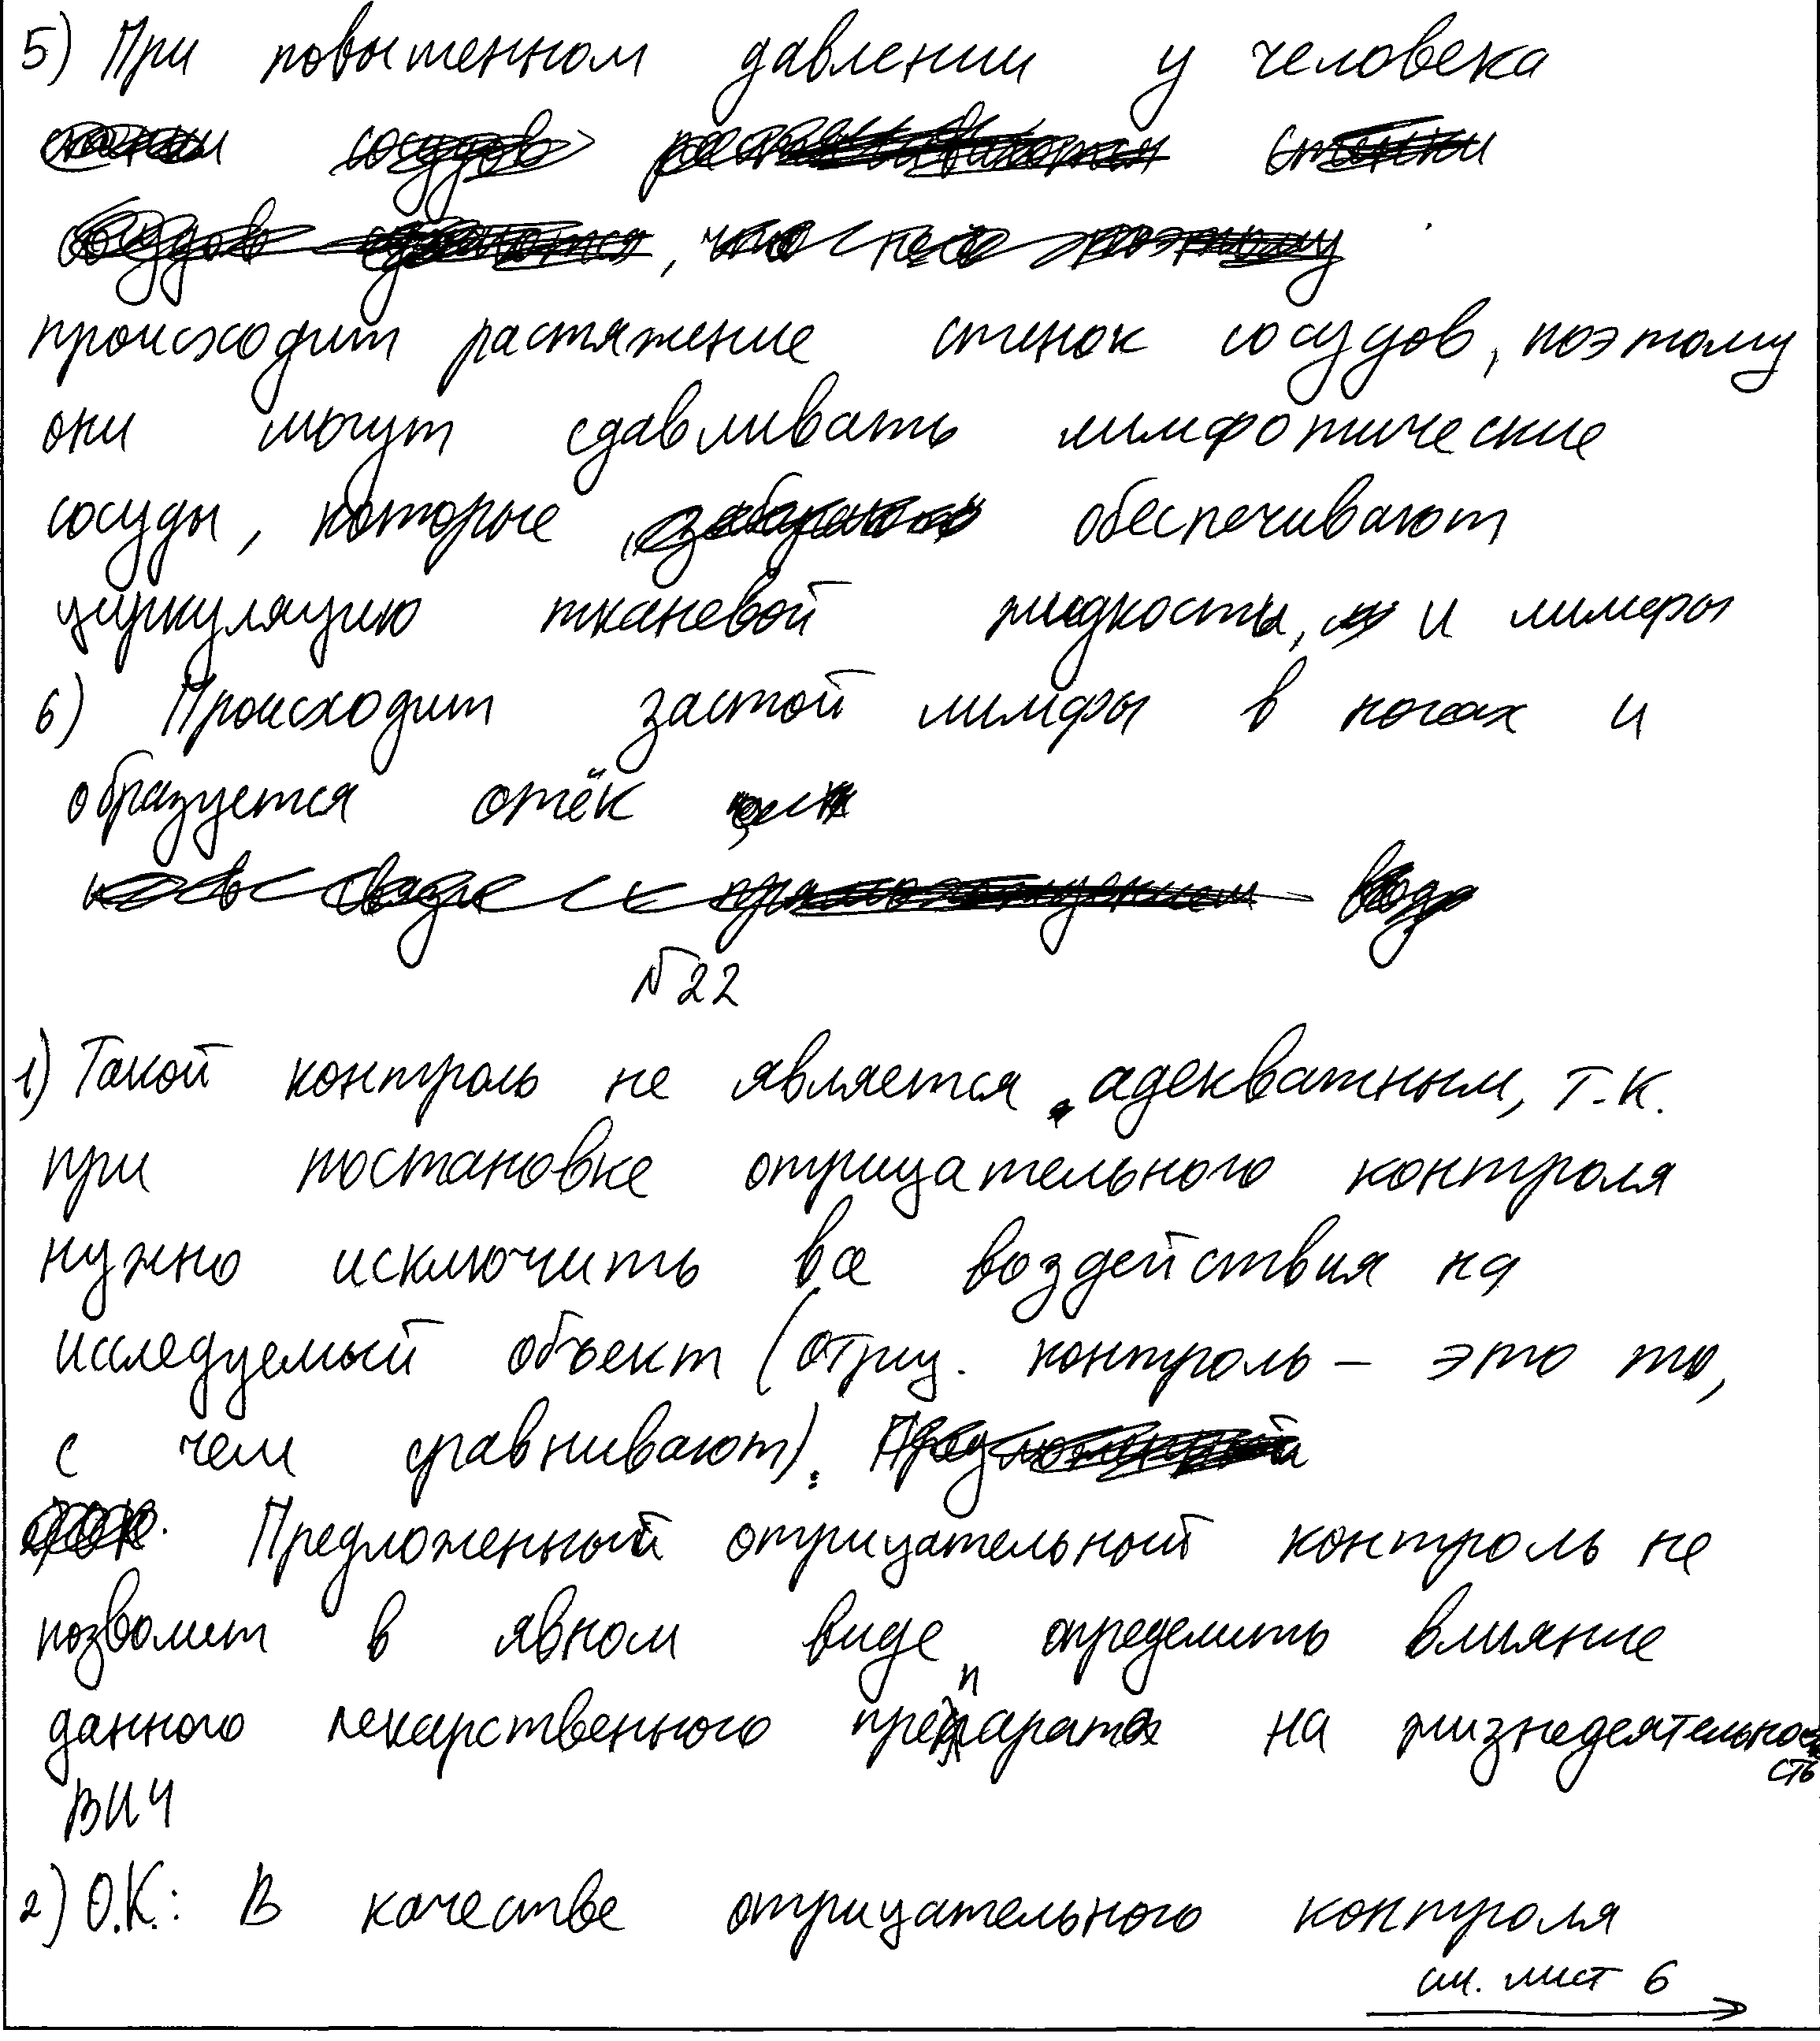 5) При повышенном давлении у человека
происходит растяжение стенок сосудов, поэтому
они могут сдавливать лимфотические
сосуды, которые обеспечивают
циркуляцию тканевой жидкости, и лимфы
6) Происходит застой лимфы в ногах и
образуется отёк
№22
1) Такой контроль не является адекватным, т.к.
при постановке отрицательного контроля
нужно исключить все воздействия на
исследуемый объект (отриц. контроль – это то,
с чем сравнивают).
Предложенный отрицательный контроль не
позволит в явном виде определить влияние
данного лекарственного препарата на жизнедеятельность
ВИЧ
2) О.К.: В качестве отрицательного контроля
см. лист 6